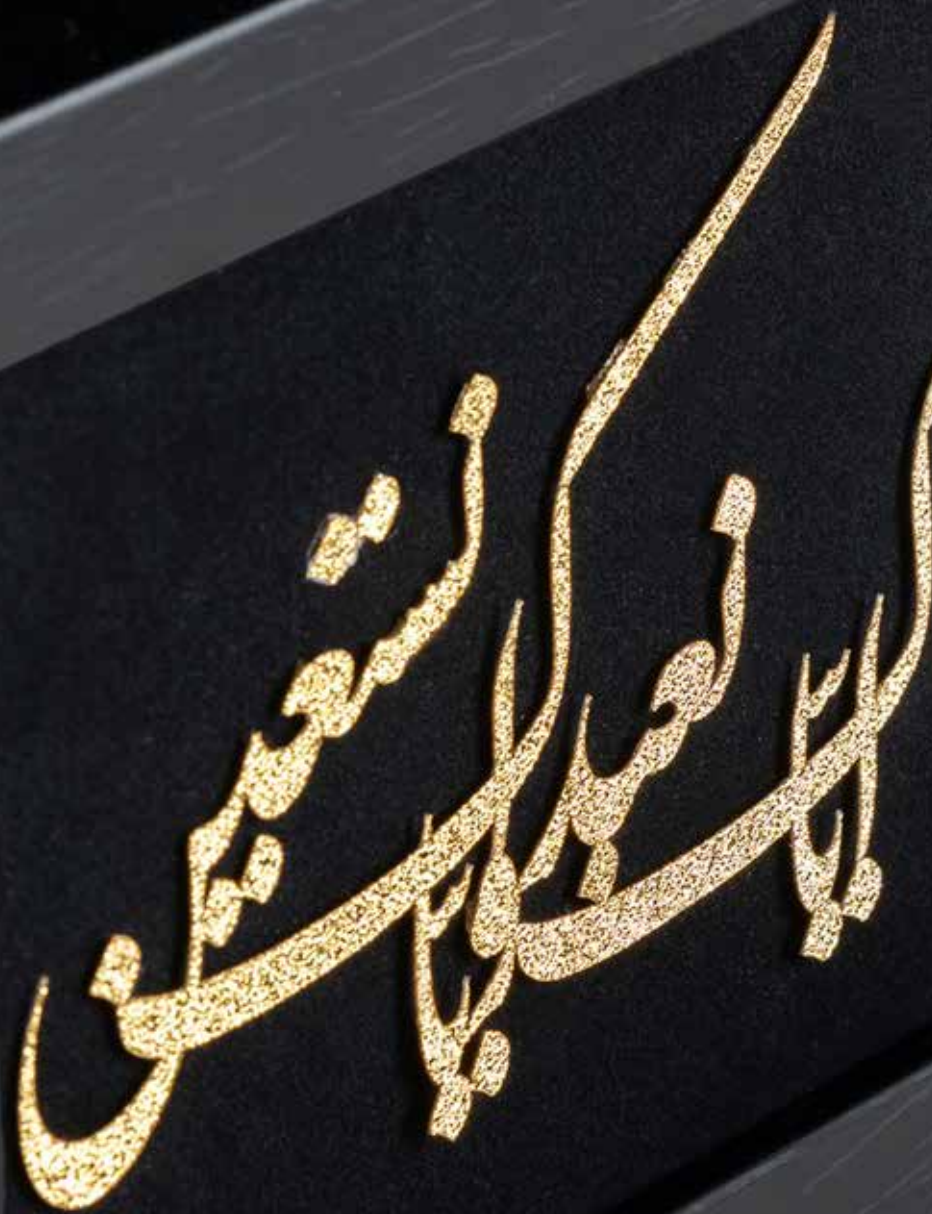 ایاک نعبد و ایاک نستعین